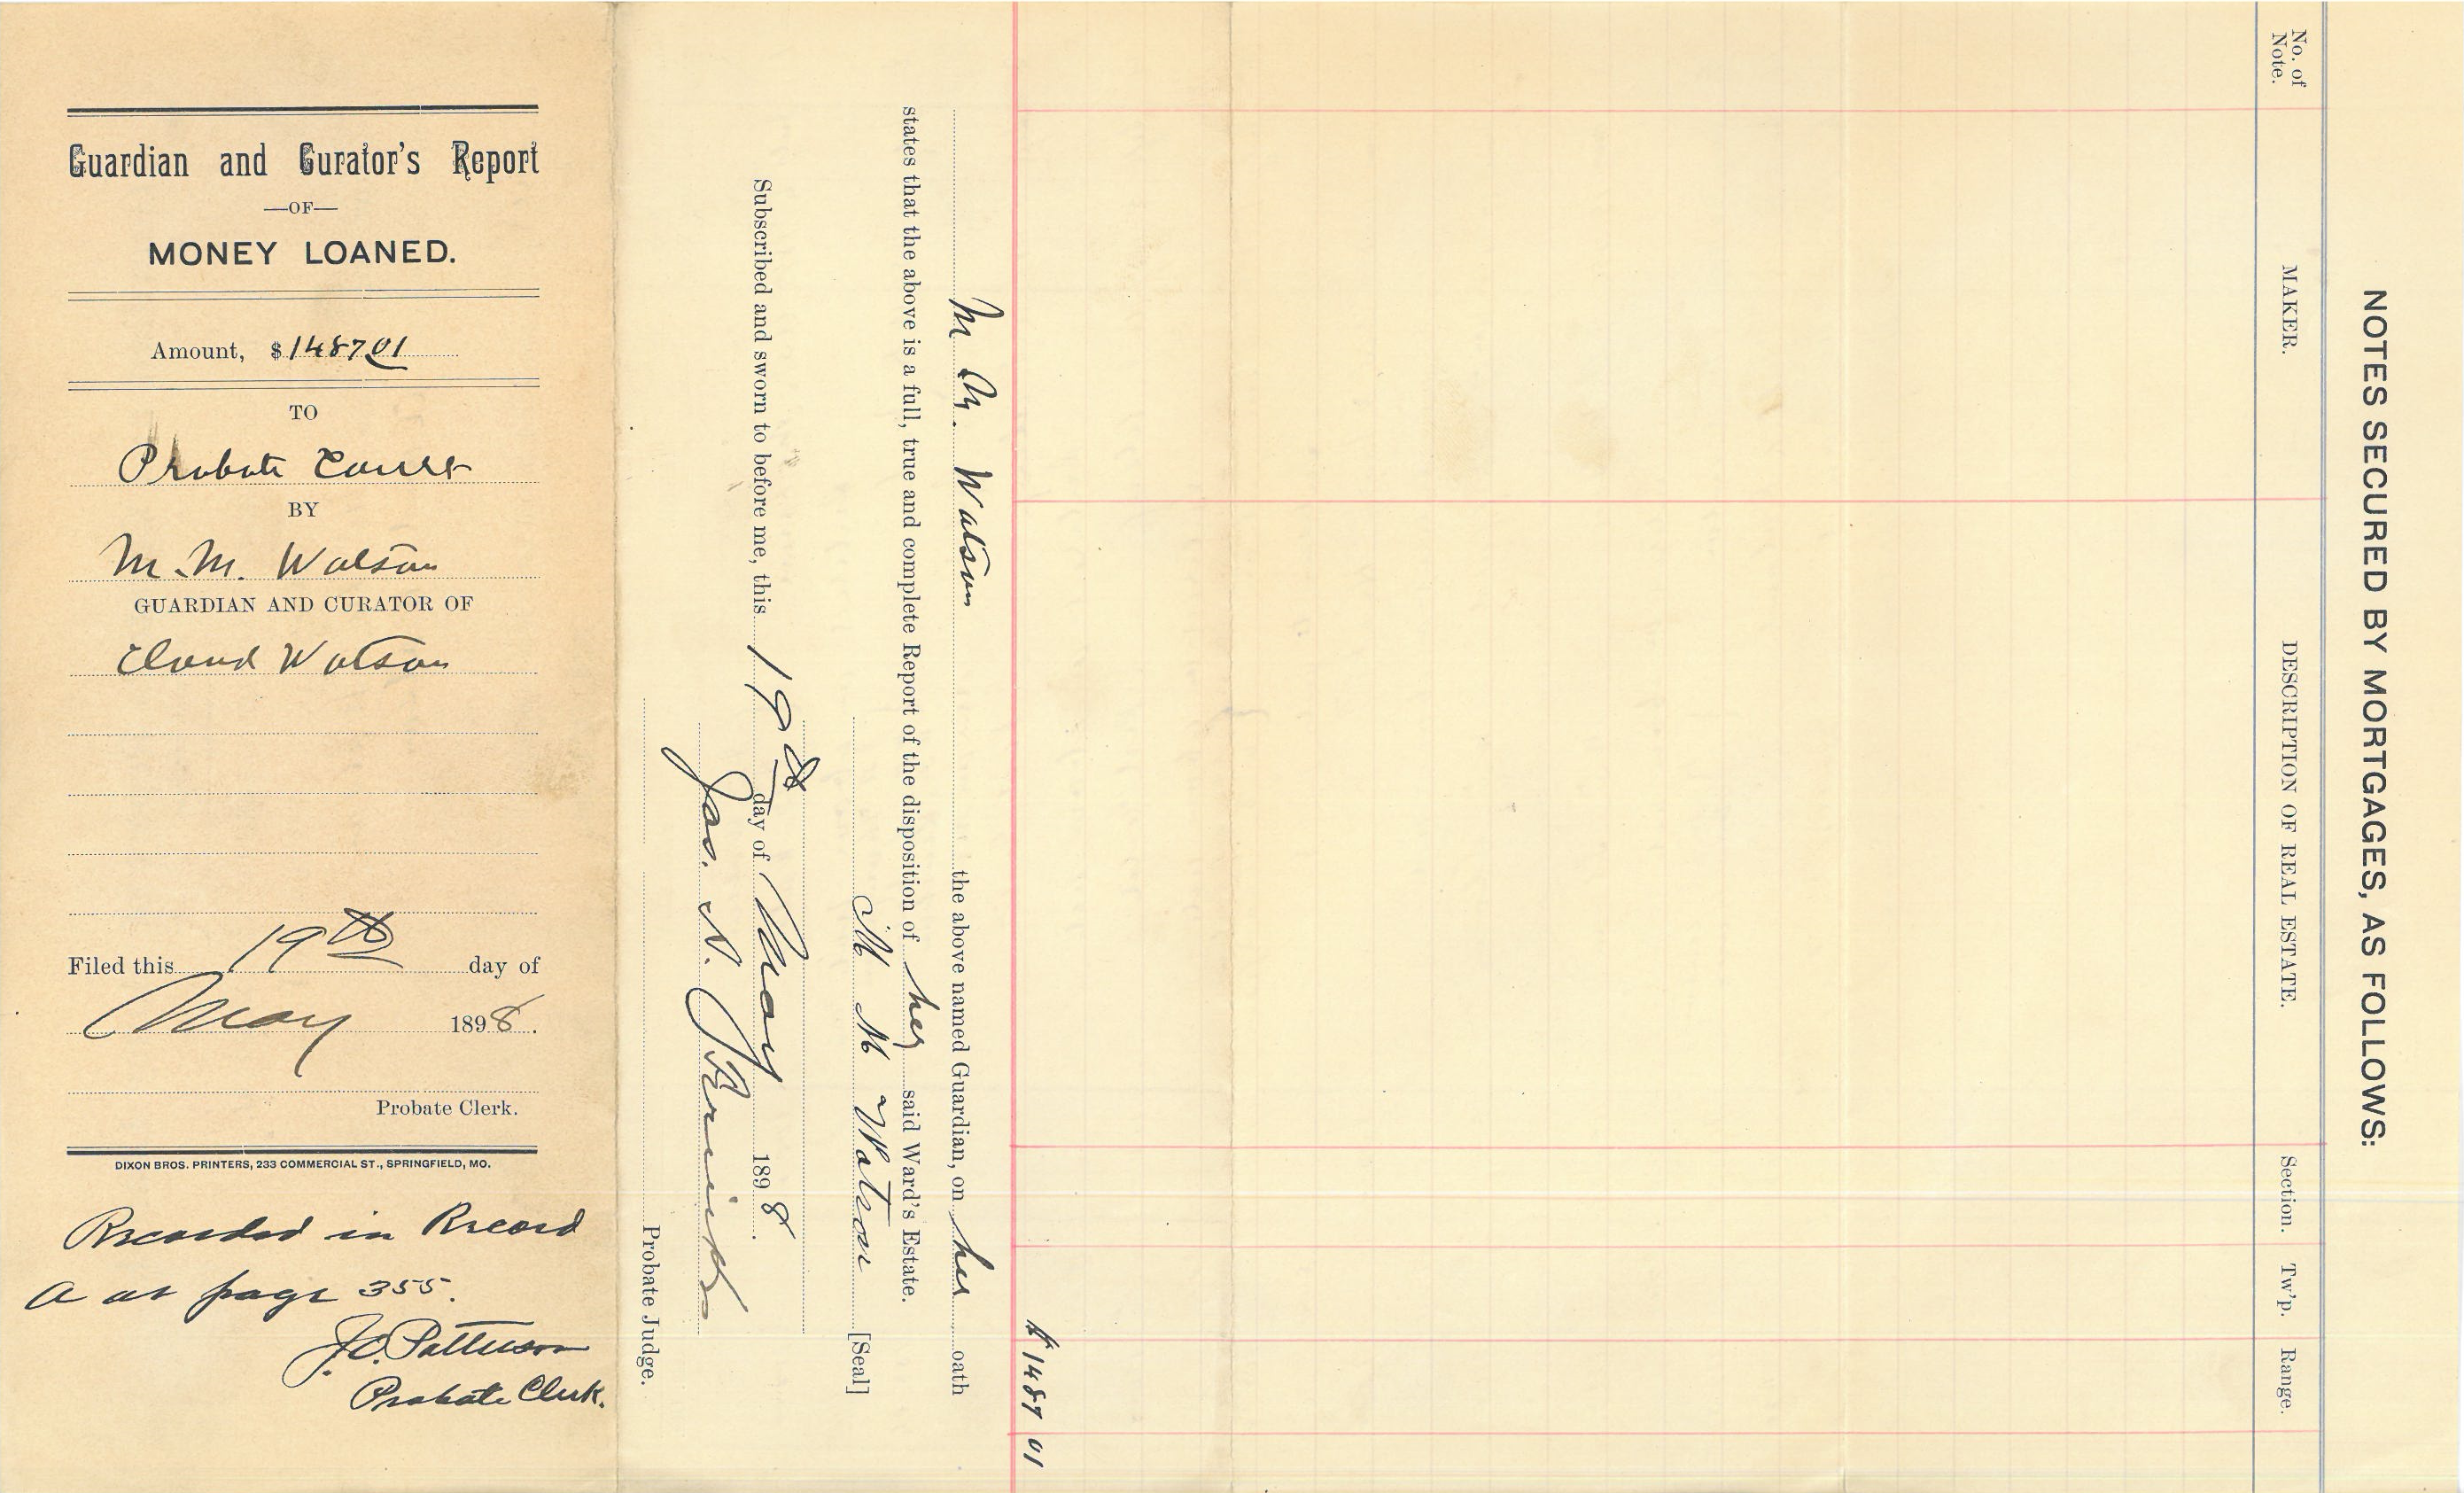 Guardian and Curator's Report
—OF—
MONEY LOANED.
Amount, $ 1487 01
TO
Probate Court
BY
M. M. Watson
GUARDIAN AND CURATOR OF
Claud Watson
Filed this 19th day of
May 1898.
Probate Clerk.
DIXON BROS. PRINTERS, 233 COMMERCIAL ST., SPRINGFIELD, MO.
Recorded in Record
A at page 355.
J.C. Patterson
Probate Clerk.
NOTES SECURED BY MORTGAGES, AS FOLLOWS:
No. of Note. MAKER. DESCRIPTION OF REAL ESTATE. Section. Tw'p. Range.
$1487 01
M M. Watson the above named Guardian, on her oath
states that the above is a full, true and complete Report of the disposition of her said Ward's Estate.
M M Watson [Seal]
Subscribed and sworn to before me, this 19th day of May 1898.
Jas. N.
Probate Judge.